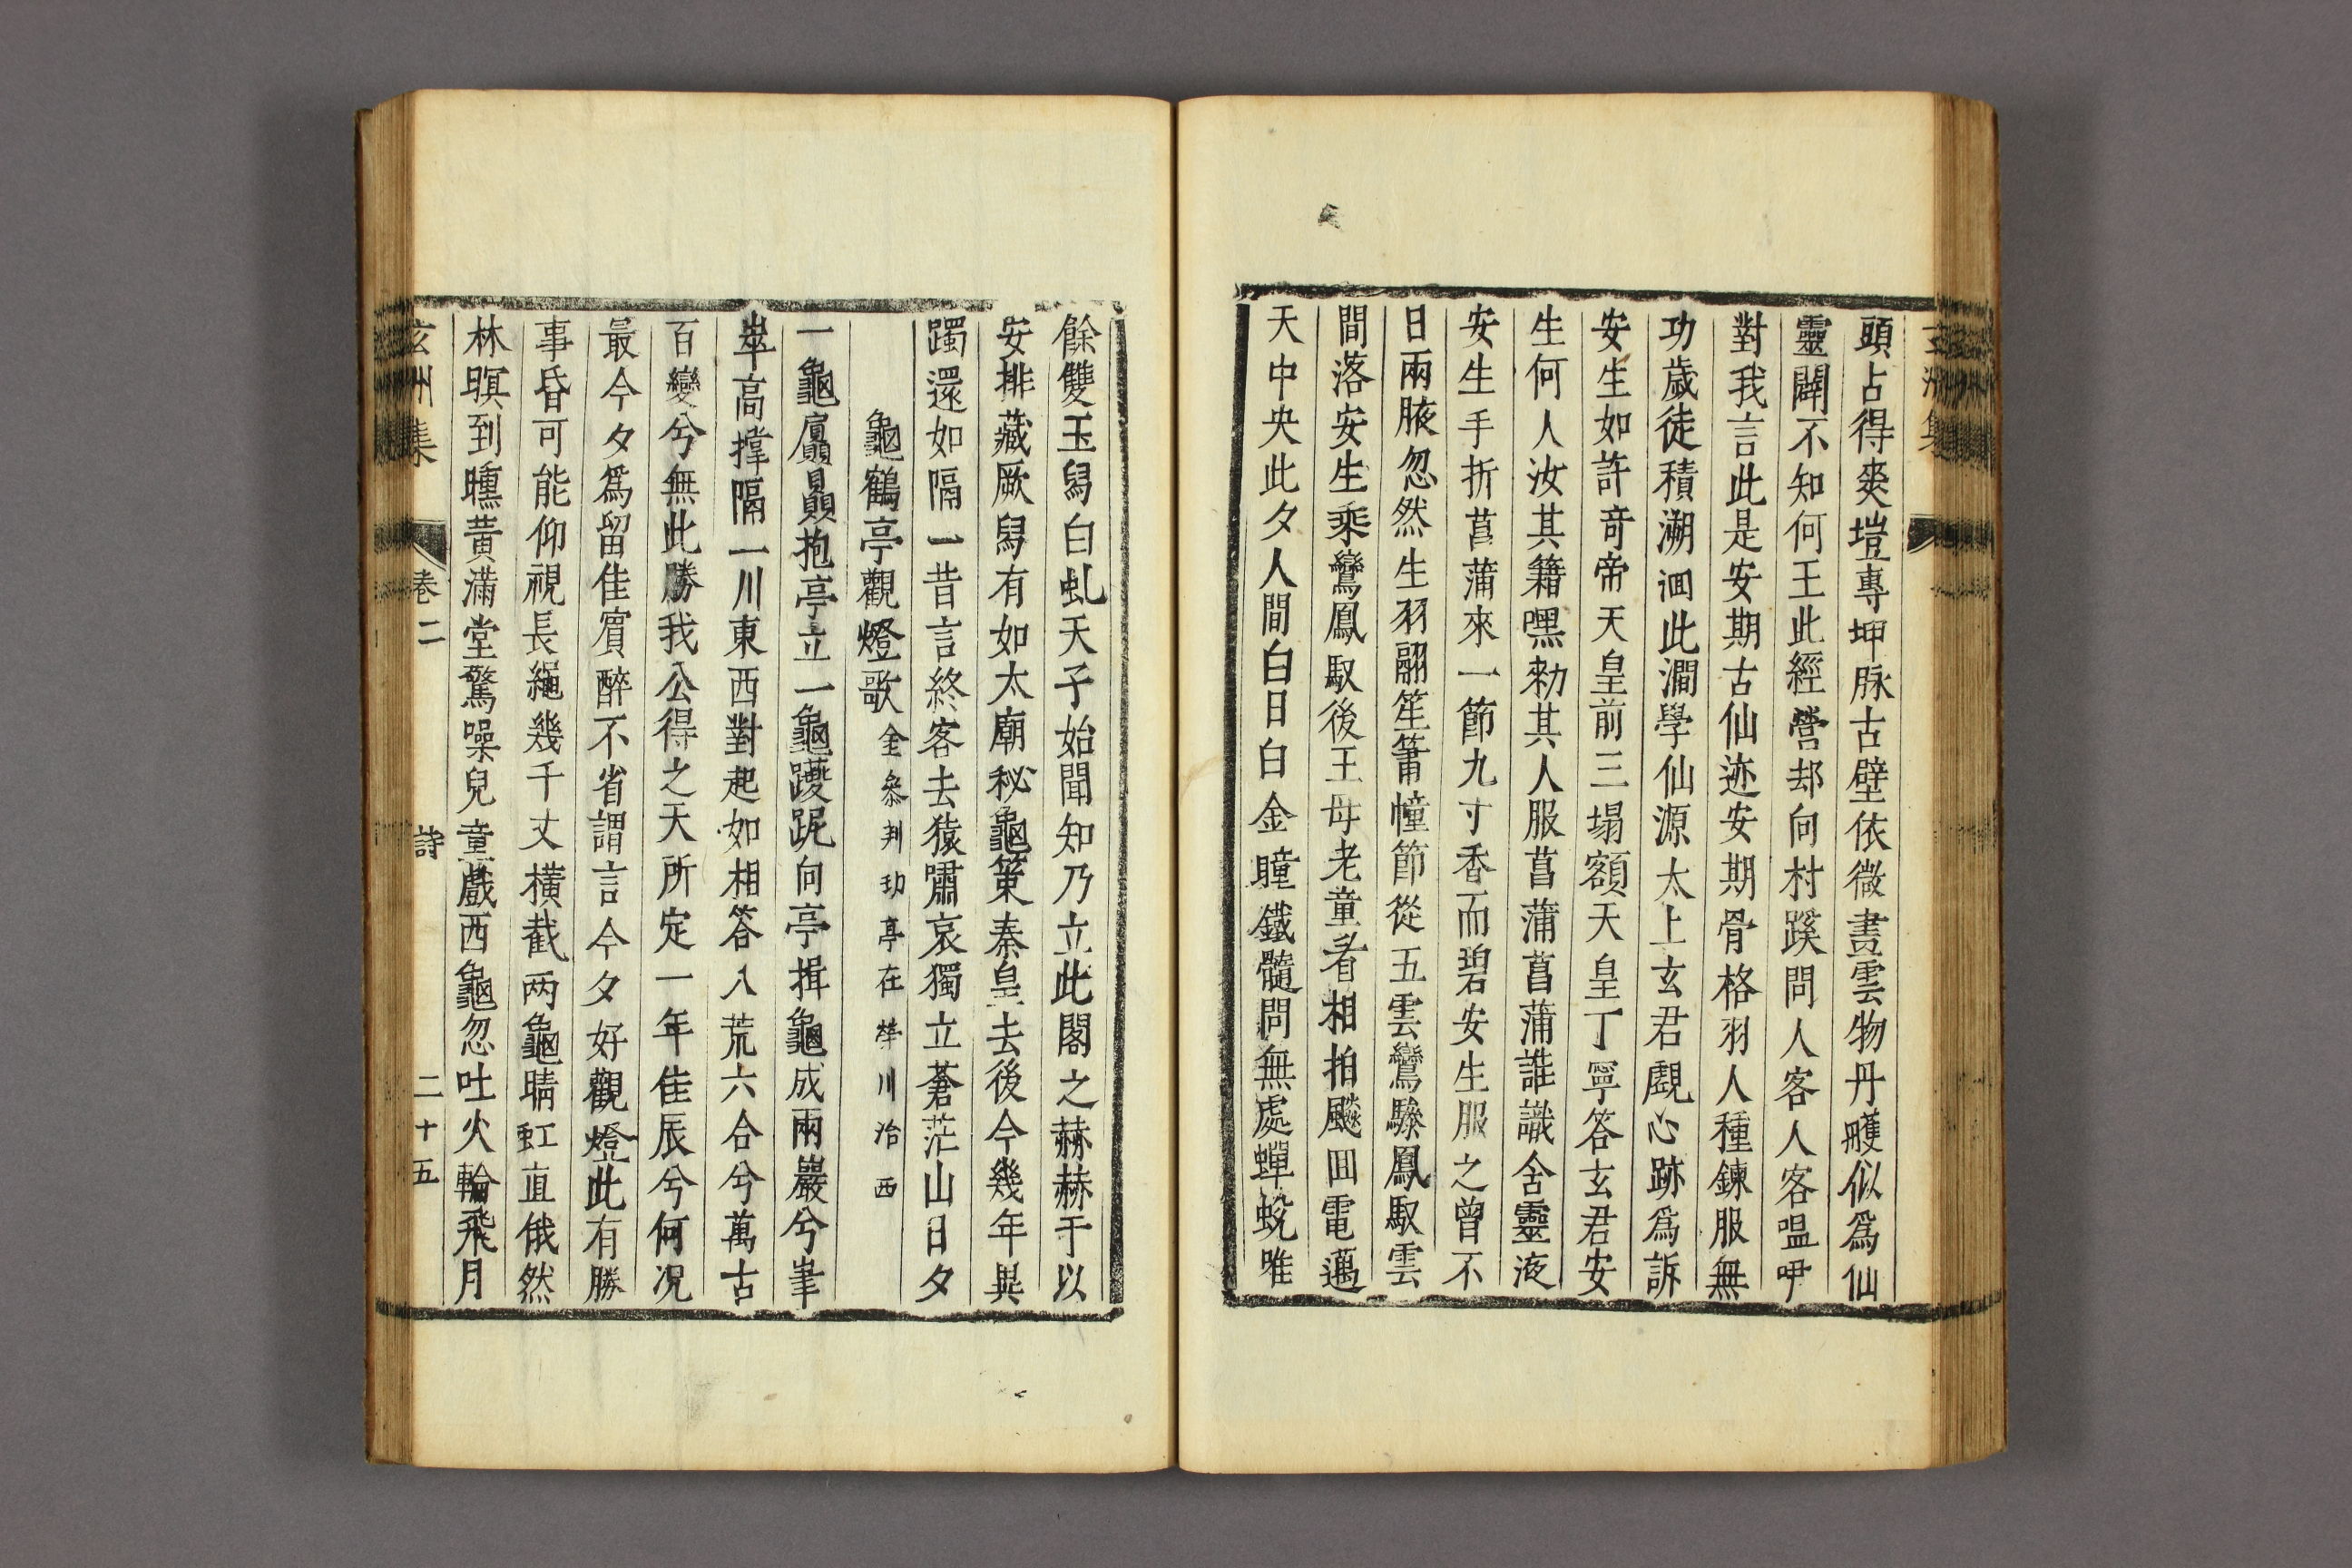 頭占得爽塏專坤脉古壁依微畫雲物丹雘似爲仙
靈闢不知何王此經營却向村蹊問人客人客嗢呷
對我言此是安期古仙迹安期骨格羽人種鍊服無
功歲徒積溯洄此澗學仙源太上玄君覷心跡爲訴
安生如許竒帝天皇前三塌額天皇丁寧答玄君安
生何人汝其籍嘿勑其人服菖蒲菖蒲誰識含靈液
安生手折菖蒲來一節九寸香而碧安生服之曾不
日兩腋忽然生羽翮笙簫幢節從五雲鸞驂鳳馭雲
間落安生乘鸞鳳馭後王母老童看相拍飈囬電邁
天中央此夕人間白日白金瞳鐵髓問無處蟬蛻唯
餘雙玉舄白虬天子始聞知乃立此閣之赫赫于以
安排藏厥舄有如太廟秘龜筴秦皇去後今幾年異
躅還如隔一昔言終客去猿嘯哀獨立蒼茫山日夕
龜鶴亭觀燈歌 金叅判玏亭在榮川治西
一龜屭贔抱亭立一龜躨跜向亭揖龜成兩巖兮峯
崒高撑隔一川東西對起如相答八荒六合兮萬古
百變兮無此勝我公得之天所定一年佳辰兮何况
最今夕爲留佳賓醉不省謂言今夕好觀燈此有勝
事昏可能仰視長繩幾千丈橫截两龜晴虹直俄然
林暝到曛黃滿堂驚噪兒童戲西龜忽吐火輪飛月
玄州集 卷二 詩 二十五